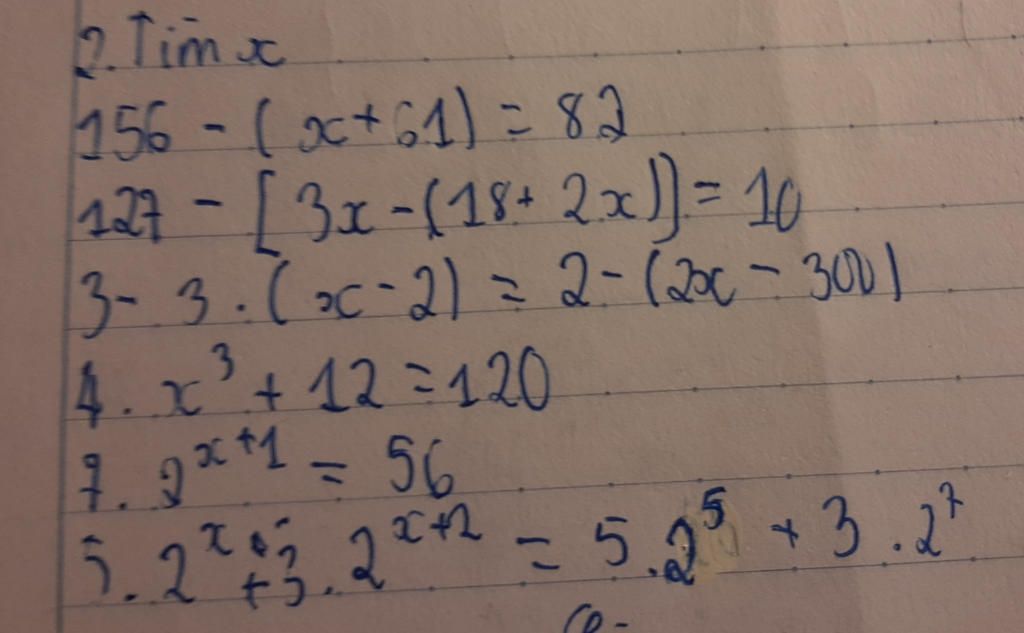 2. Tìm x
156 - (x + 61) = 82
127 - [3x - (18 + 2x)] = 10
3 - 3 . (x - 2) = 2 - (2x - 300)
4 . x³ + 12 = 120
7 . 2ˣ⁺¹ = 56
5 . 2ˣ + 3 . 2ˣ⁺² = 5 . 2⁵ + 3 . 2⁷